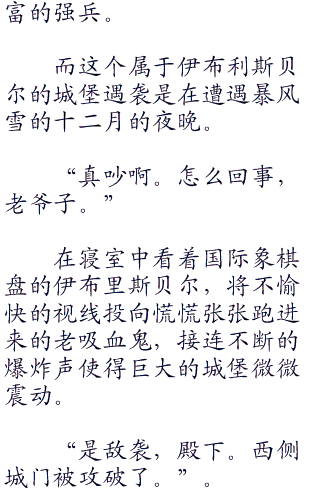 富的强兵。
而这个属于伊布利斯贝
尔的城堡遇袭是在遭遇暴风
雪的十二月的夜晚。
“真吵啊。怎么回事，
老爷子。”
在寝室中看着国际象棋
盘的伊布里斯贝尔，将不愉
快的视线投向慌慌张张跑进
来的老吸血鬼，接连不断的
爆炸声使得巨大的城堡微微
震动。
“是敌袭，殿下。西侧
城门被攻破了。”。